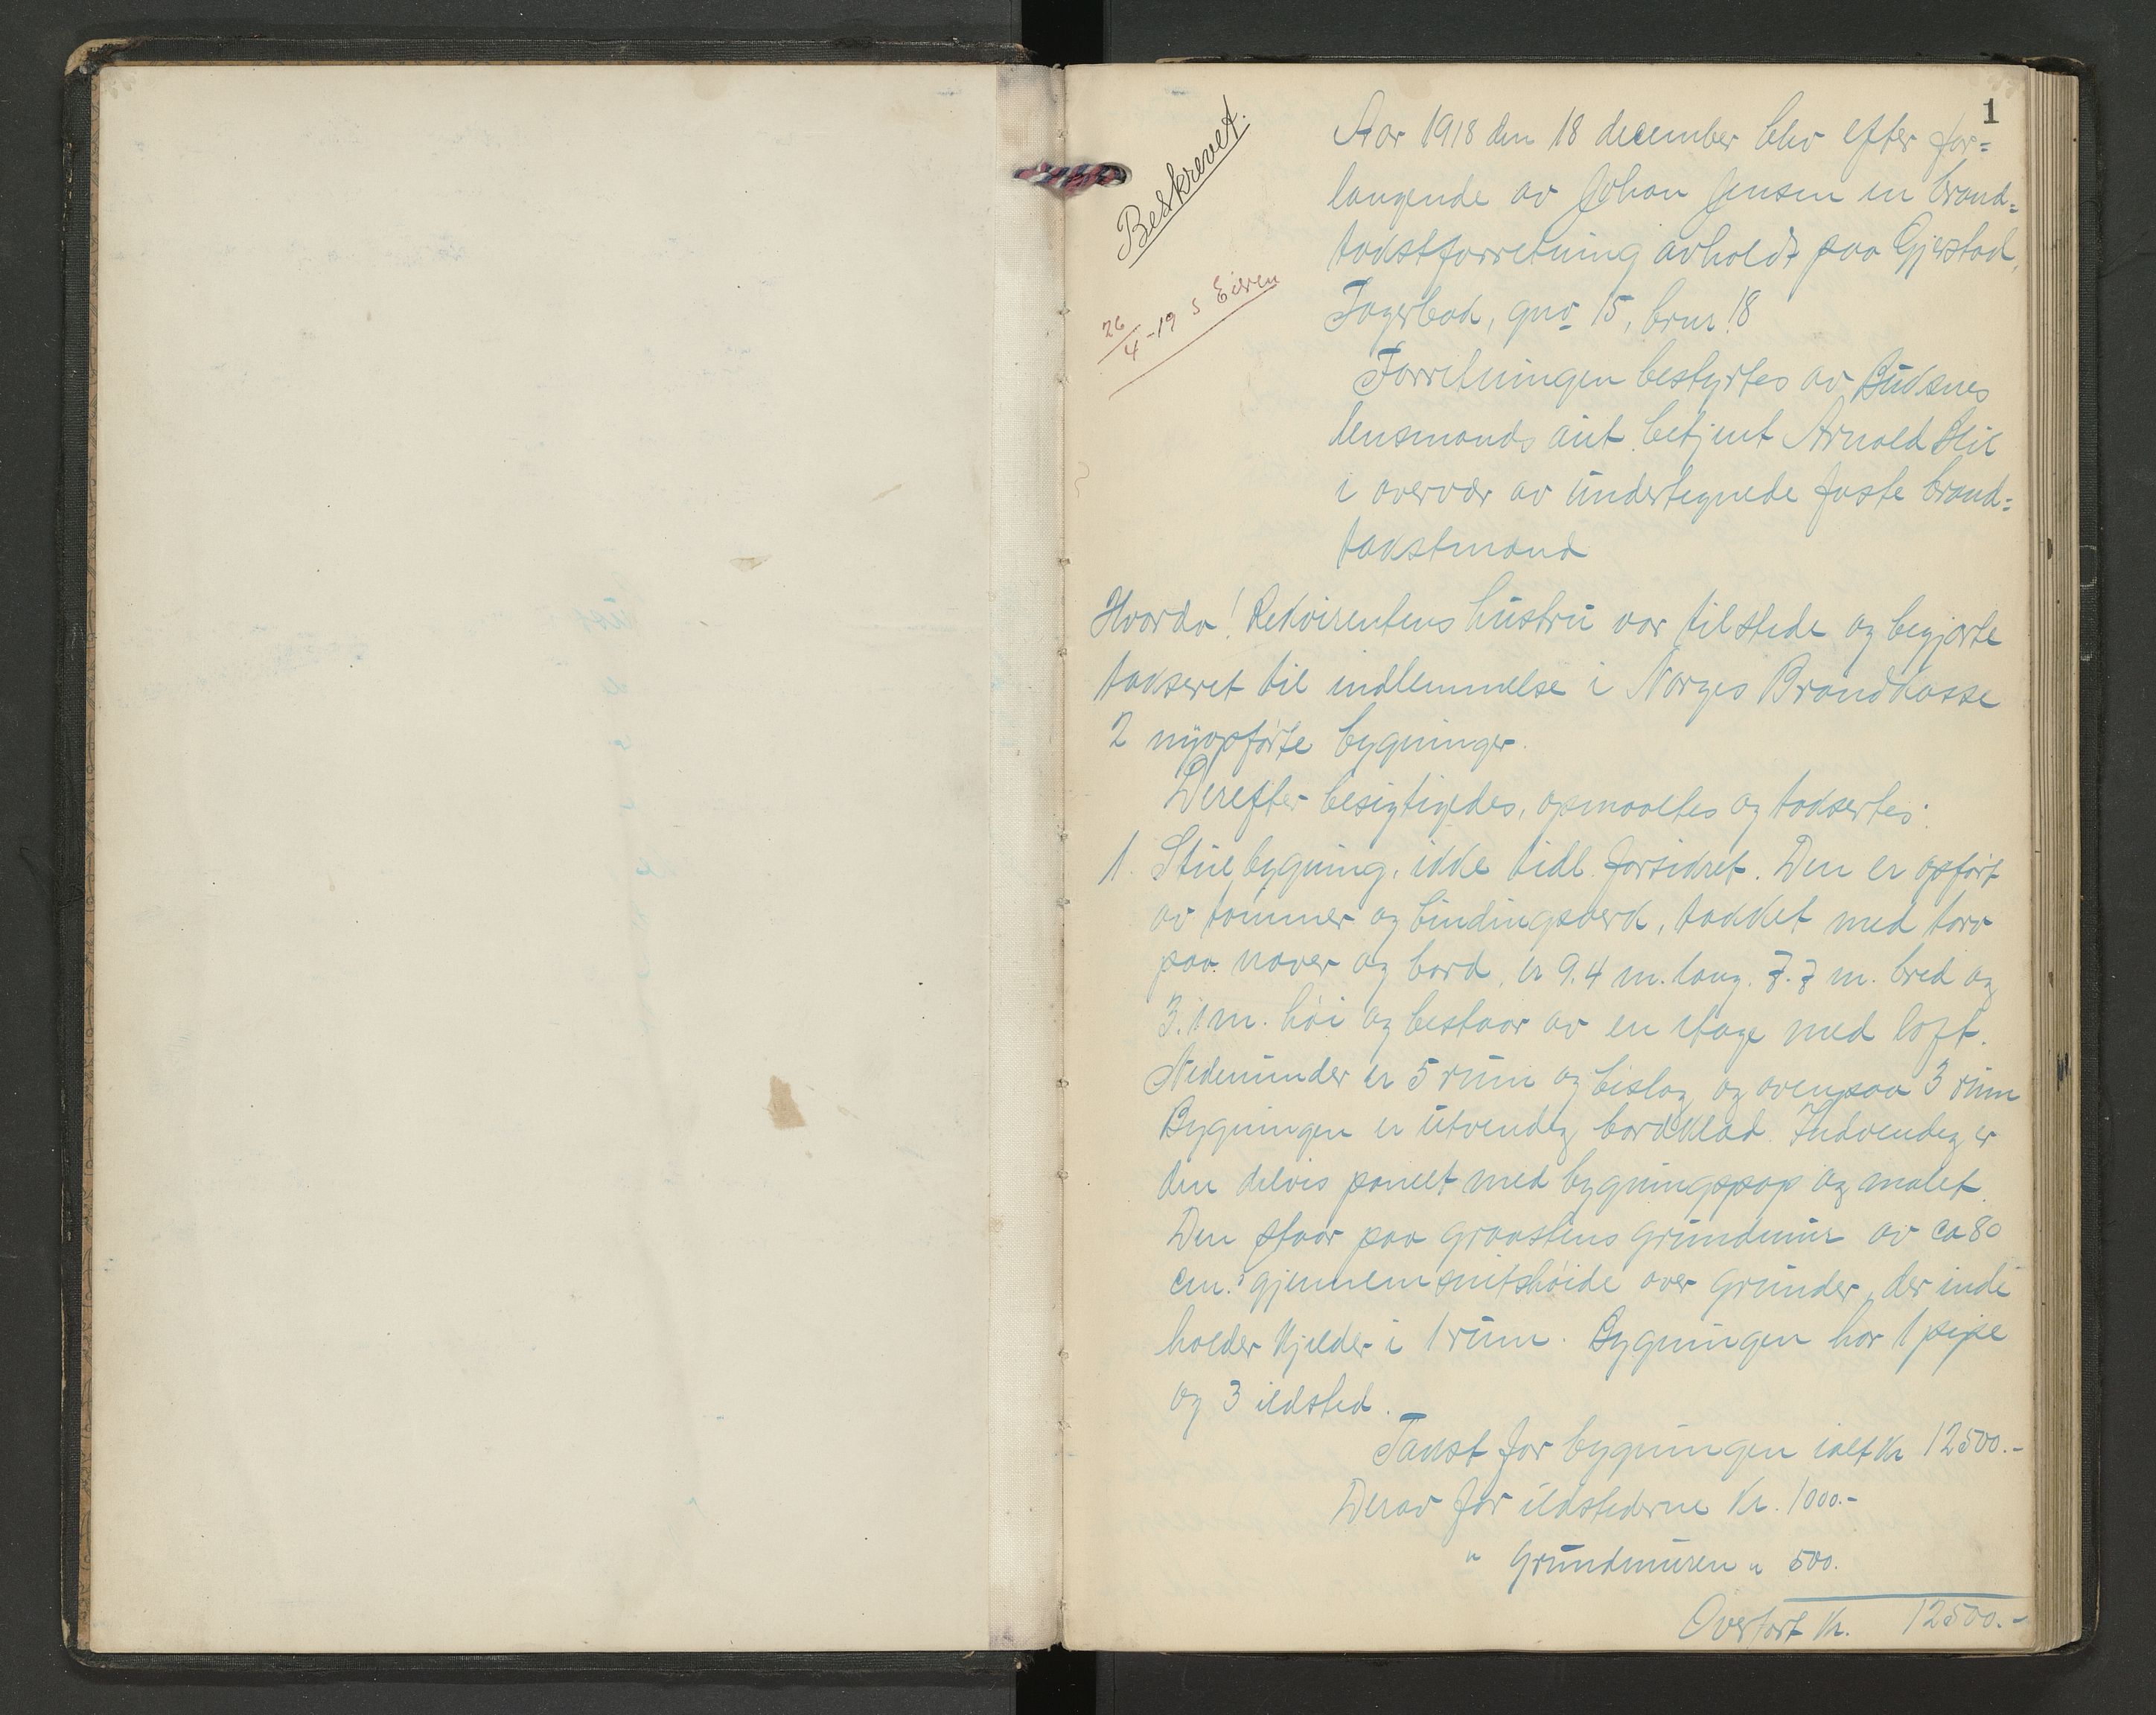 1
Beskrevet.
26/4-19 s Eieren
Aar 1918 den 18 december blev efter for=
langende av Johan Jensen en brand=
takstforretning avholdt paa Gjerstad,
Fagerbak, gno 15, brnr. 18
Forretningen bestyrtes av Buksnes
lensmands aut. betjent Arnold
i overvær av undertegnede faste brand=
takstmænd
Hvorda! Rekvirentens hustru var tilstede og begjærte
takseret til indlemmelse i Norges Brandkasse
2 nyopførte bygninger.
Derefter besigtigedes, opmaaltes og taksertes:
1. Stuebygning, ikke tidl. forsikret. Den er opført
av tømmer og bindingsverk, tækket med torv
paa næver og bord, er 9.4 m. lang. 7.7 m. bred og
3.1 m. høi og bestaar av en etage med loft.
Nedenunder er 5 rum og bislag og ovenpaa 3 rum
Bygningen er utvendig bordklæd. Indvendig er
den delvis panelt med bygningspap og malet.
Den staar paa graastens grundmur av ca 80
cm.s gjennemsnitshøide over grunden, der inde
holder kjelder i 1 rum. Bygningen har 1 pipe
og 3 ildsted.
Takst for bygningen ialt kr 12500.-
Derav for ildstederne kr. 1000.-
" grundmuren " 500.
Overført kr. 12500.-